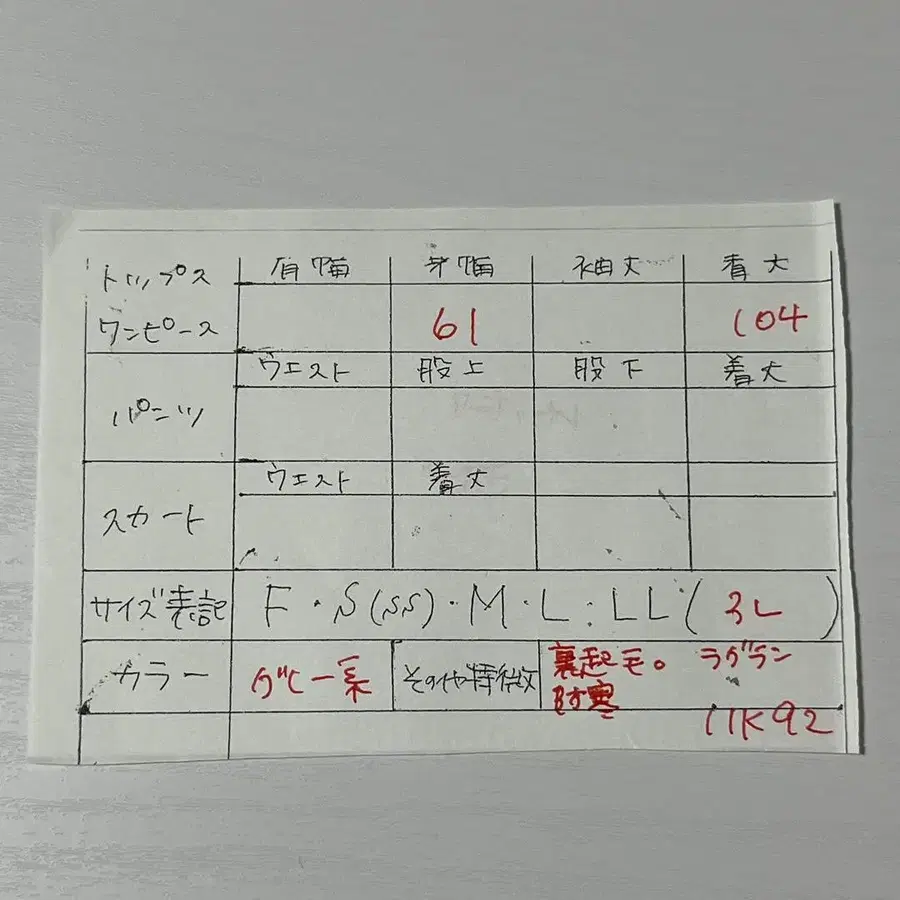 トップス 肩幅 身幅 袖丈 着丈
ワンピース 61 104
パンツ ウエスト 股上 股下 着丈
スカート ウエスト 着丈
サイズ表記 F・S(SS)・M・L・LL・(3L)
カラー グレー系 その他特徴 裏起毛。 ラグラン
防寒
11K92